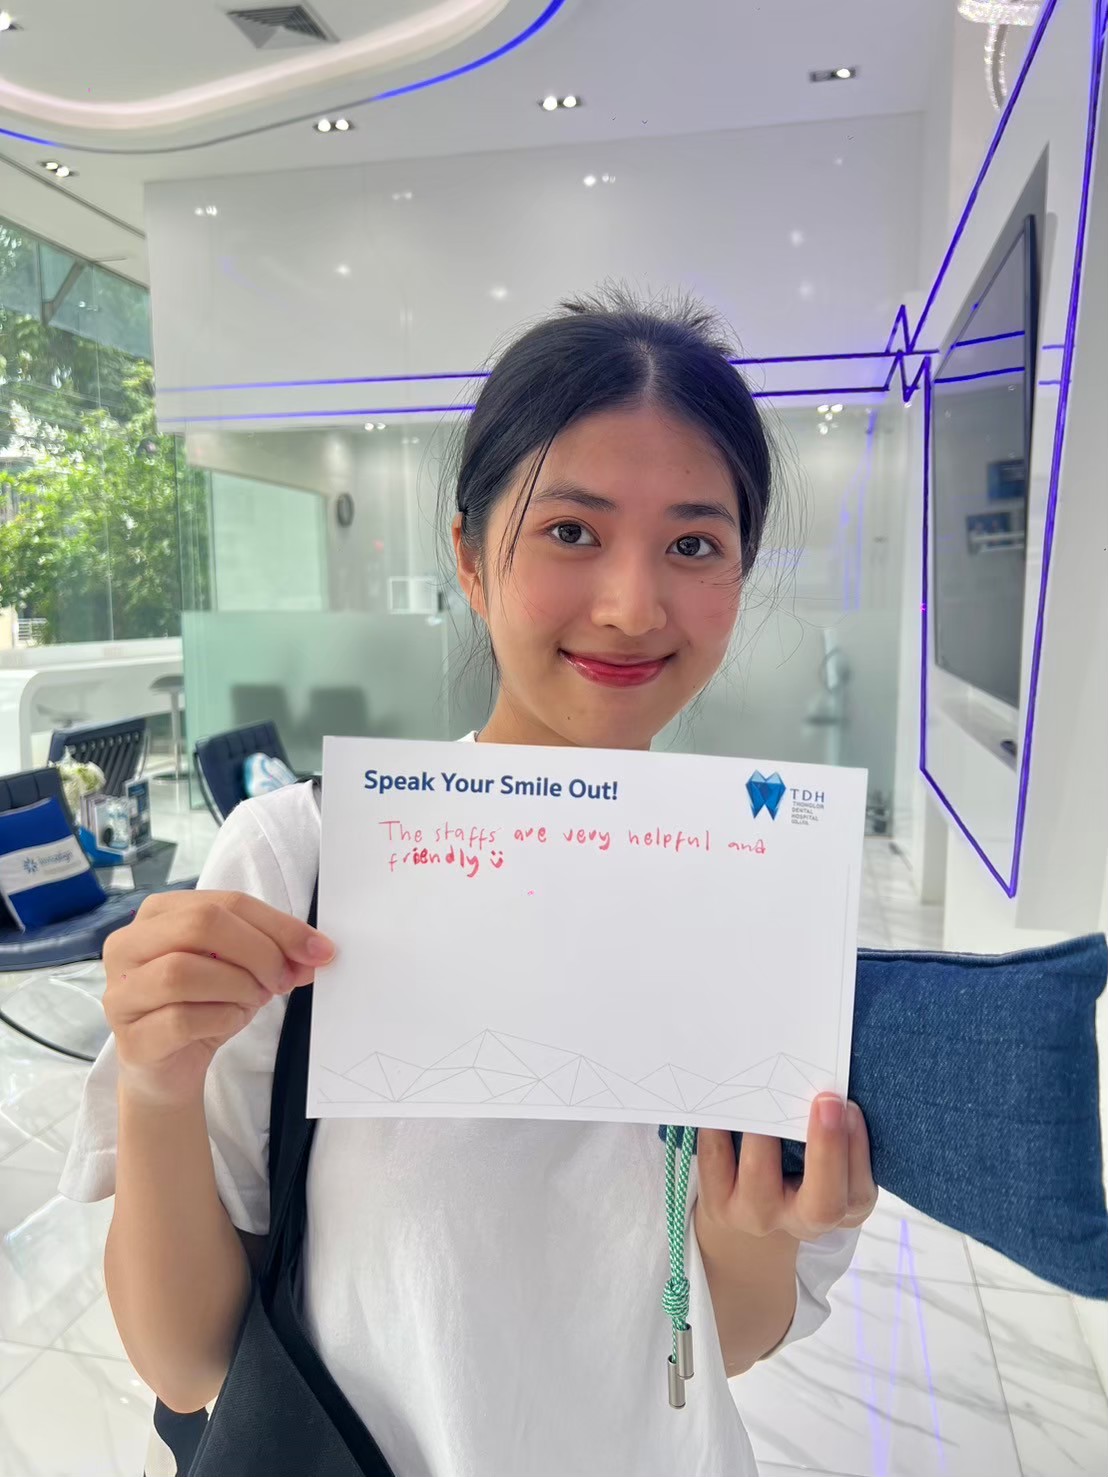 Speak Your Smile Out!
TDH
THONGLOR
DENTAL
HOSPITAL
The staffs are very helpful and
friendly